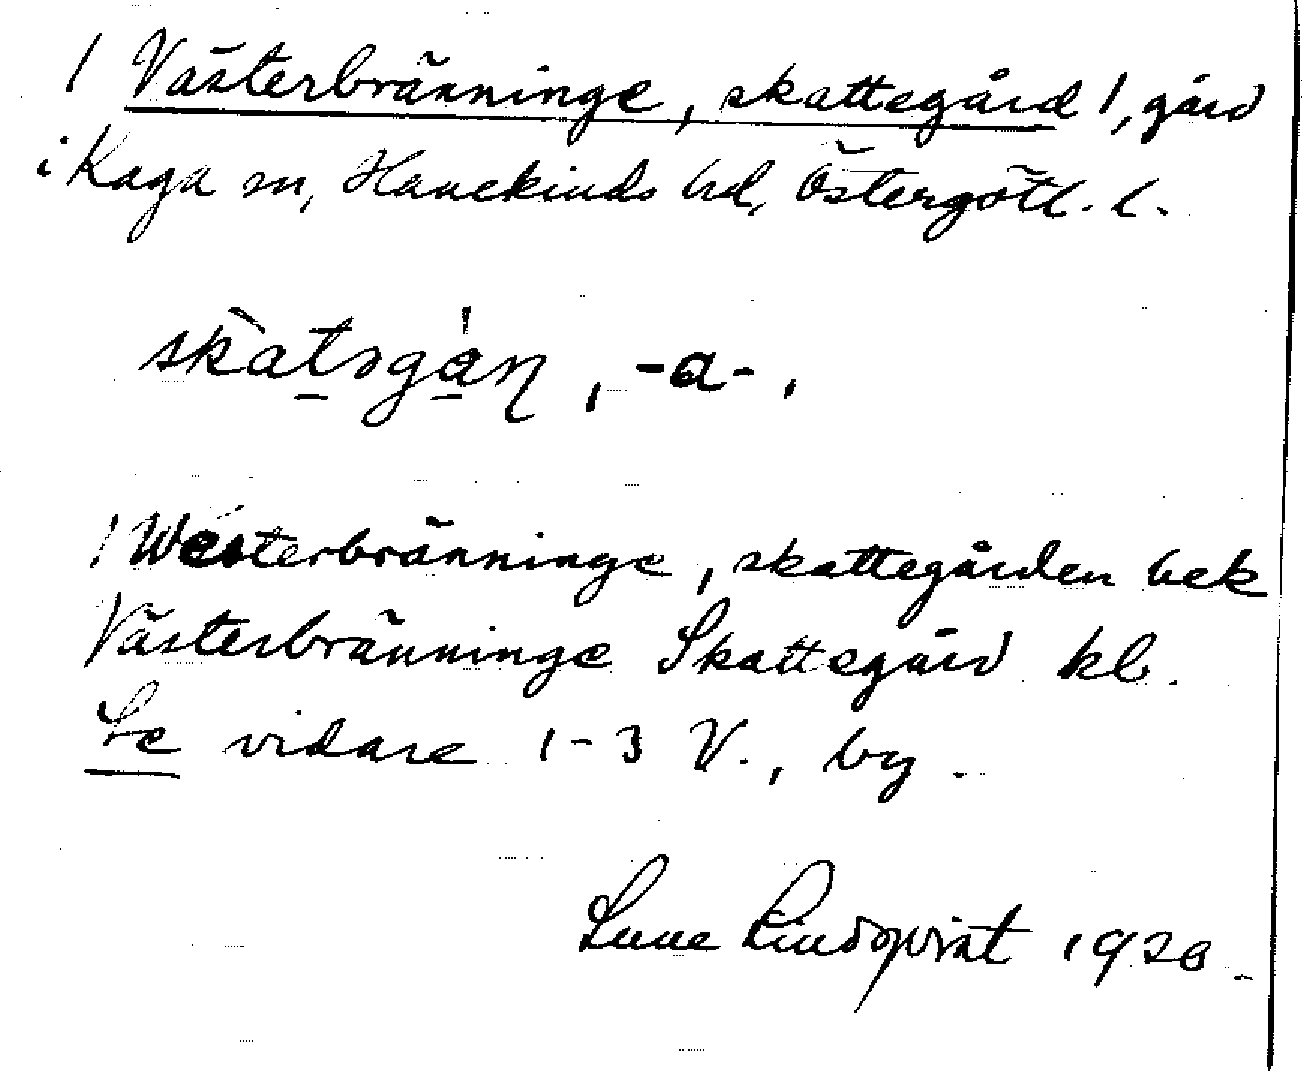 1 Västerbränninge, skattegård 1, gård
i Kaga sn, Hanekinds hd, Östergötl. l.
skàtsgán, -a-,
1 Westerbränninge, skattegården bek
Västerbränninge Skattegård kb.
Se vidare 1-3 V., by.
Sune Lindqvist 1920.